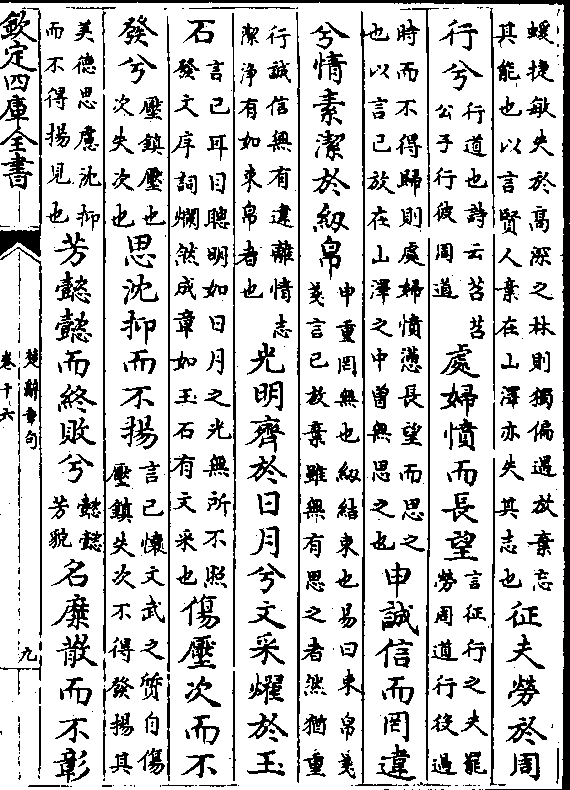 蝯捷敏失於高深之林則獨偏遇放棄忘其能也以言賢人棄在山澤亦失其志也征夫勞於周
行兮行道也詩云苕苕公子行彼周道處婦憤而長望言征行之夫罷勞周道行役過
時而不得歸則處婦憤懣長望而思之也以言已放在山澤之中曾無思之也申誠信而罔違
兮情素潔於紉帛申重罔無也紉結束也易曰束帛戔戔言已放棄雖無有思之者然猶重
行誠信無有違離情志潔淨有如束帛者也光明齊於日月兮文采燿於玉
石言已耳目聰明如日月之光無所不照發文序詞爛然成章如玉石有文采也傷壓次而不
發兮壓鎮壓也次失次也思沈抑而不揚言已懷文武之質自傷壓鎮失次不得發揚其
美德思慮沈抑而不得揚見也芳懿懿而終敗兮懿懿芳貌名靡散而不彰
欽定四庫全書
楚辭章句
卷十六
九